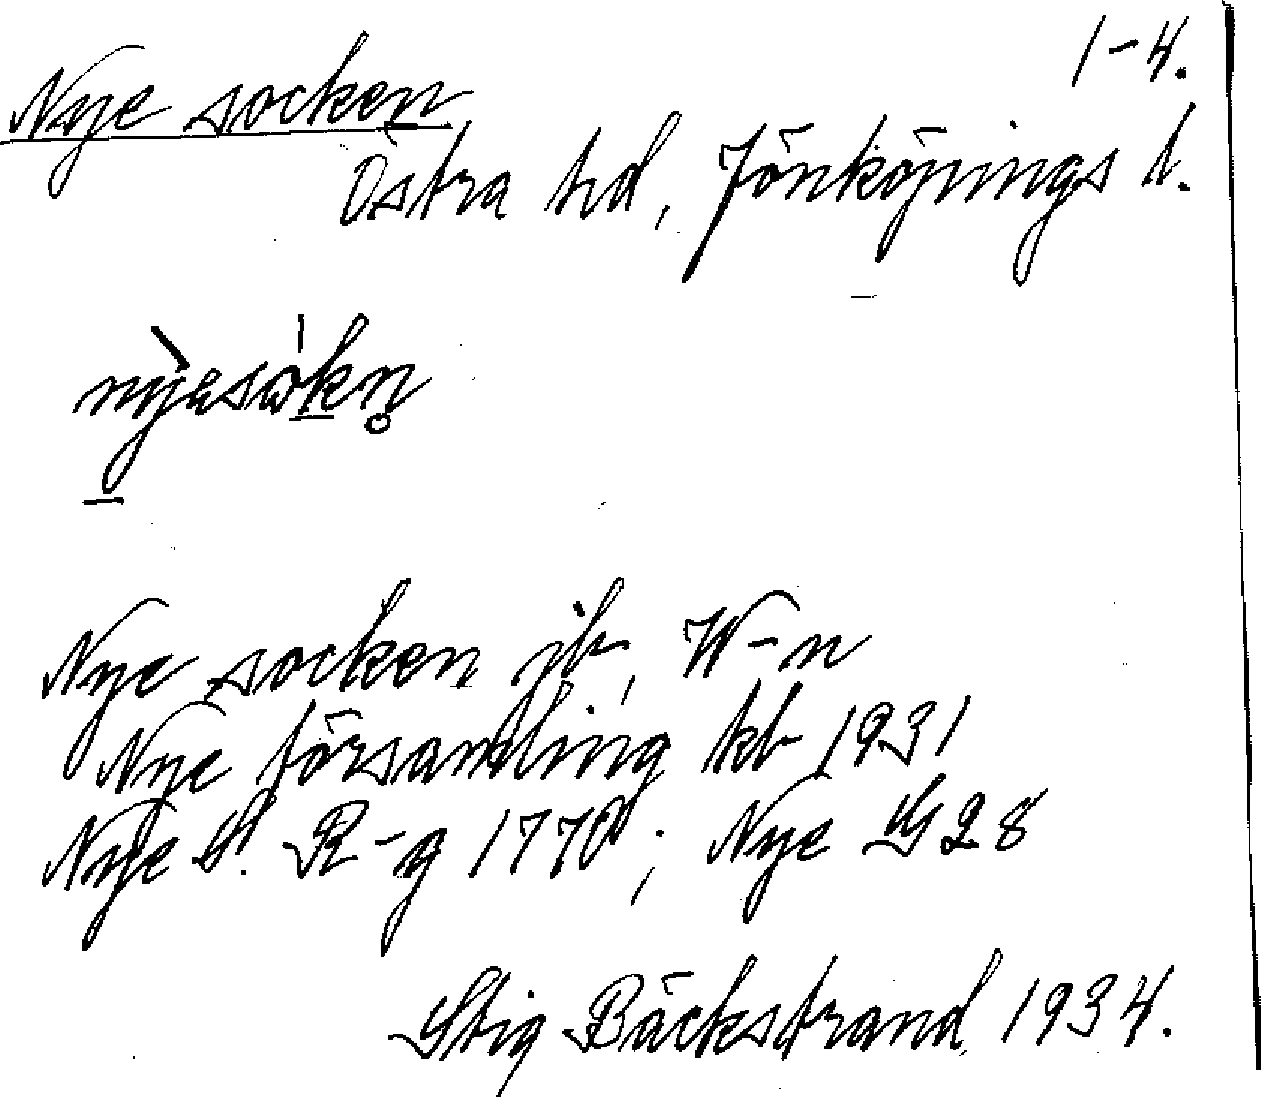 1-4.
Nye socken
Östra hd, Jönköpings l.
Nye socken jb, W-n
Nye församling kb 1931
Nye S. R-g 1770; Nye G 28
Stig Bäckstrand 1934.